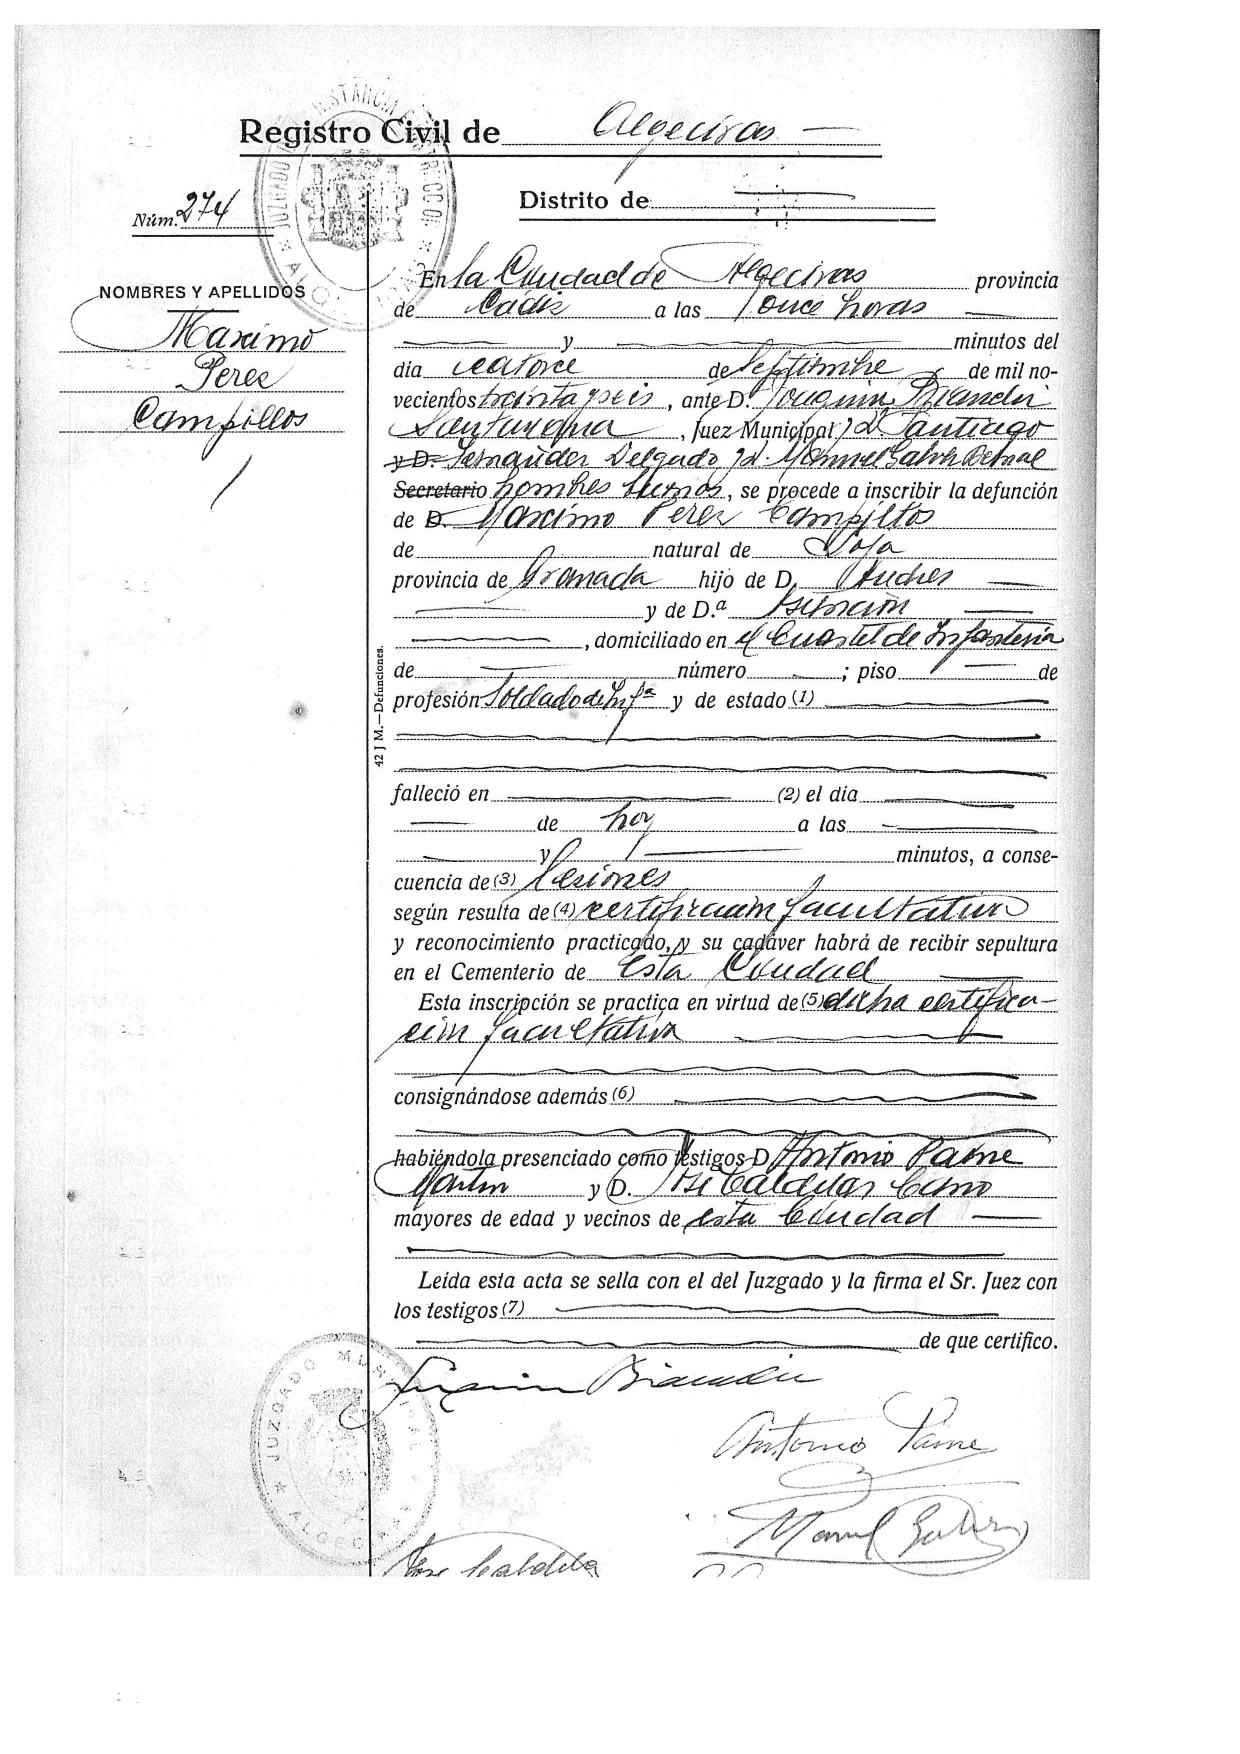 Registro Civil de Algeciras
Núm. 274
Distrito de
NOMBRES Y APELLIDOS
Maximo
Perez
Campillos
En la Ciudad de Algeciras provincia
de Cádiz a las once horas
y minutos del
día catorce de Septiembre de mil no-
vecientos treinta y seis, ante D. Joaquin Bianchi
Santurona, Juez Municipal y D. Santiago
y D. Fernandez Delgado y D. Manuel Galvez Bernal
Secretario hombres buenos, se procede a inscribir la defunción
de D. Maximo Perez Campillos
de natural de Loja
provincia de Granada hijo de D. Andres
y de D.ª Asuncion
, domiciliado en el Cuartel de Infanteria
de número ; piso de
profesión Soldado de Infª y de estado (1)
42 J M.—Defunciones.
falleció en (2) el día
de hoy a las
y minutos, a conse-
cuencia de (3) lesiones
según resulta de (4) certificacion facultativa
y reconocimiento practicado, y su cadáver habrá de recibir sepultura
en el Cementerio de esta Ciudad
Esta inscripción se practica en virtud de (5) dicha certifica-
cion facultativa
consignándose además (6)
habiéndola presenciado como testigos D Antonio Paine
Martin y D. José Caldelas Cano
mayores de edad y vecinos de esta Ciudad
Leída esta acta se sella con el del Juzgado y la firma el Sr. Juez con
los testigos (7)
de que certifico.
JUZGADO MUNICIPAL
ALGECIRAS
Joaquin Bianchi
Antonio Paine
Manuel Galvez